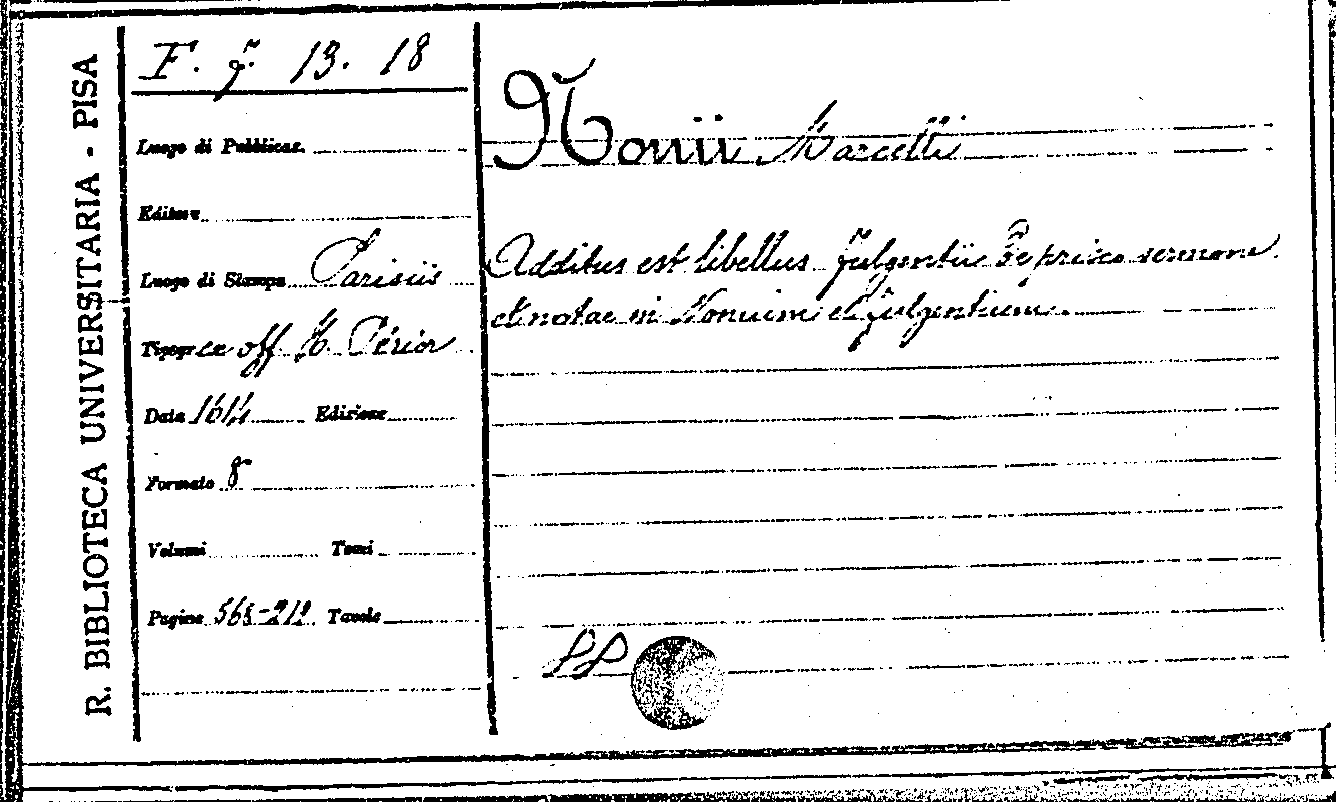 R. BIBLIOTECA UNIVERSITARIA - PISA
F. g. 13. 18
Luogo di Pubblicaz.
Editore
Luogo di Stampa Parisiis
Tipogr ex off. H. Périer
Data 1614 Edizione
Formato 8
Volumi Tomi
Pagine 565-212 Tavole
Nonii Marcelli
Additus est libellus Fulgentii De prisco sermone
et notae in Nonium et Fulgentium.